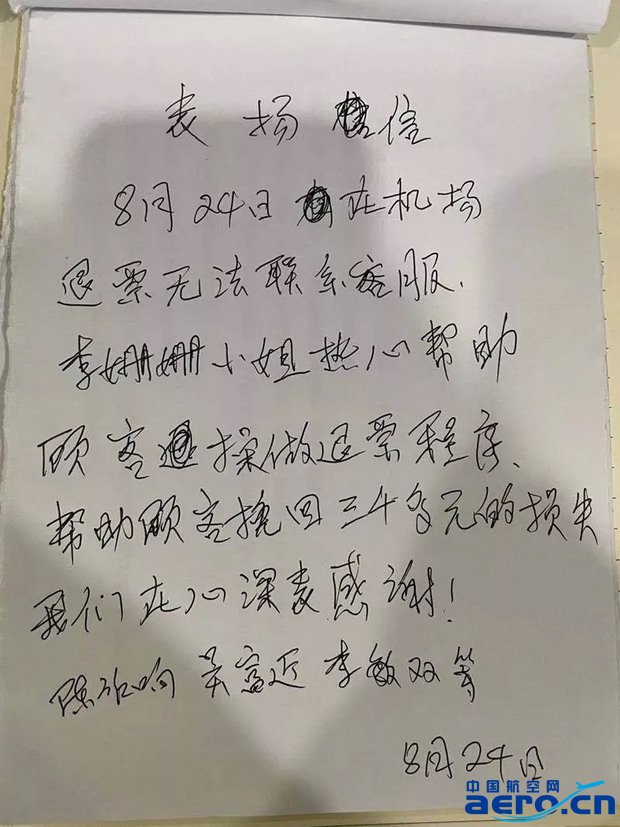 表扬信
8月24日在机场
退票无法联系客服.
李姗姗小姐热心帮助
顾客操做退票程序、
帮助顾客挽回三千多元的损失
我们在心深表感谢!
吴富近 李敏双等
8月24日
中国航空网
aero.cn